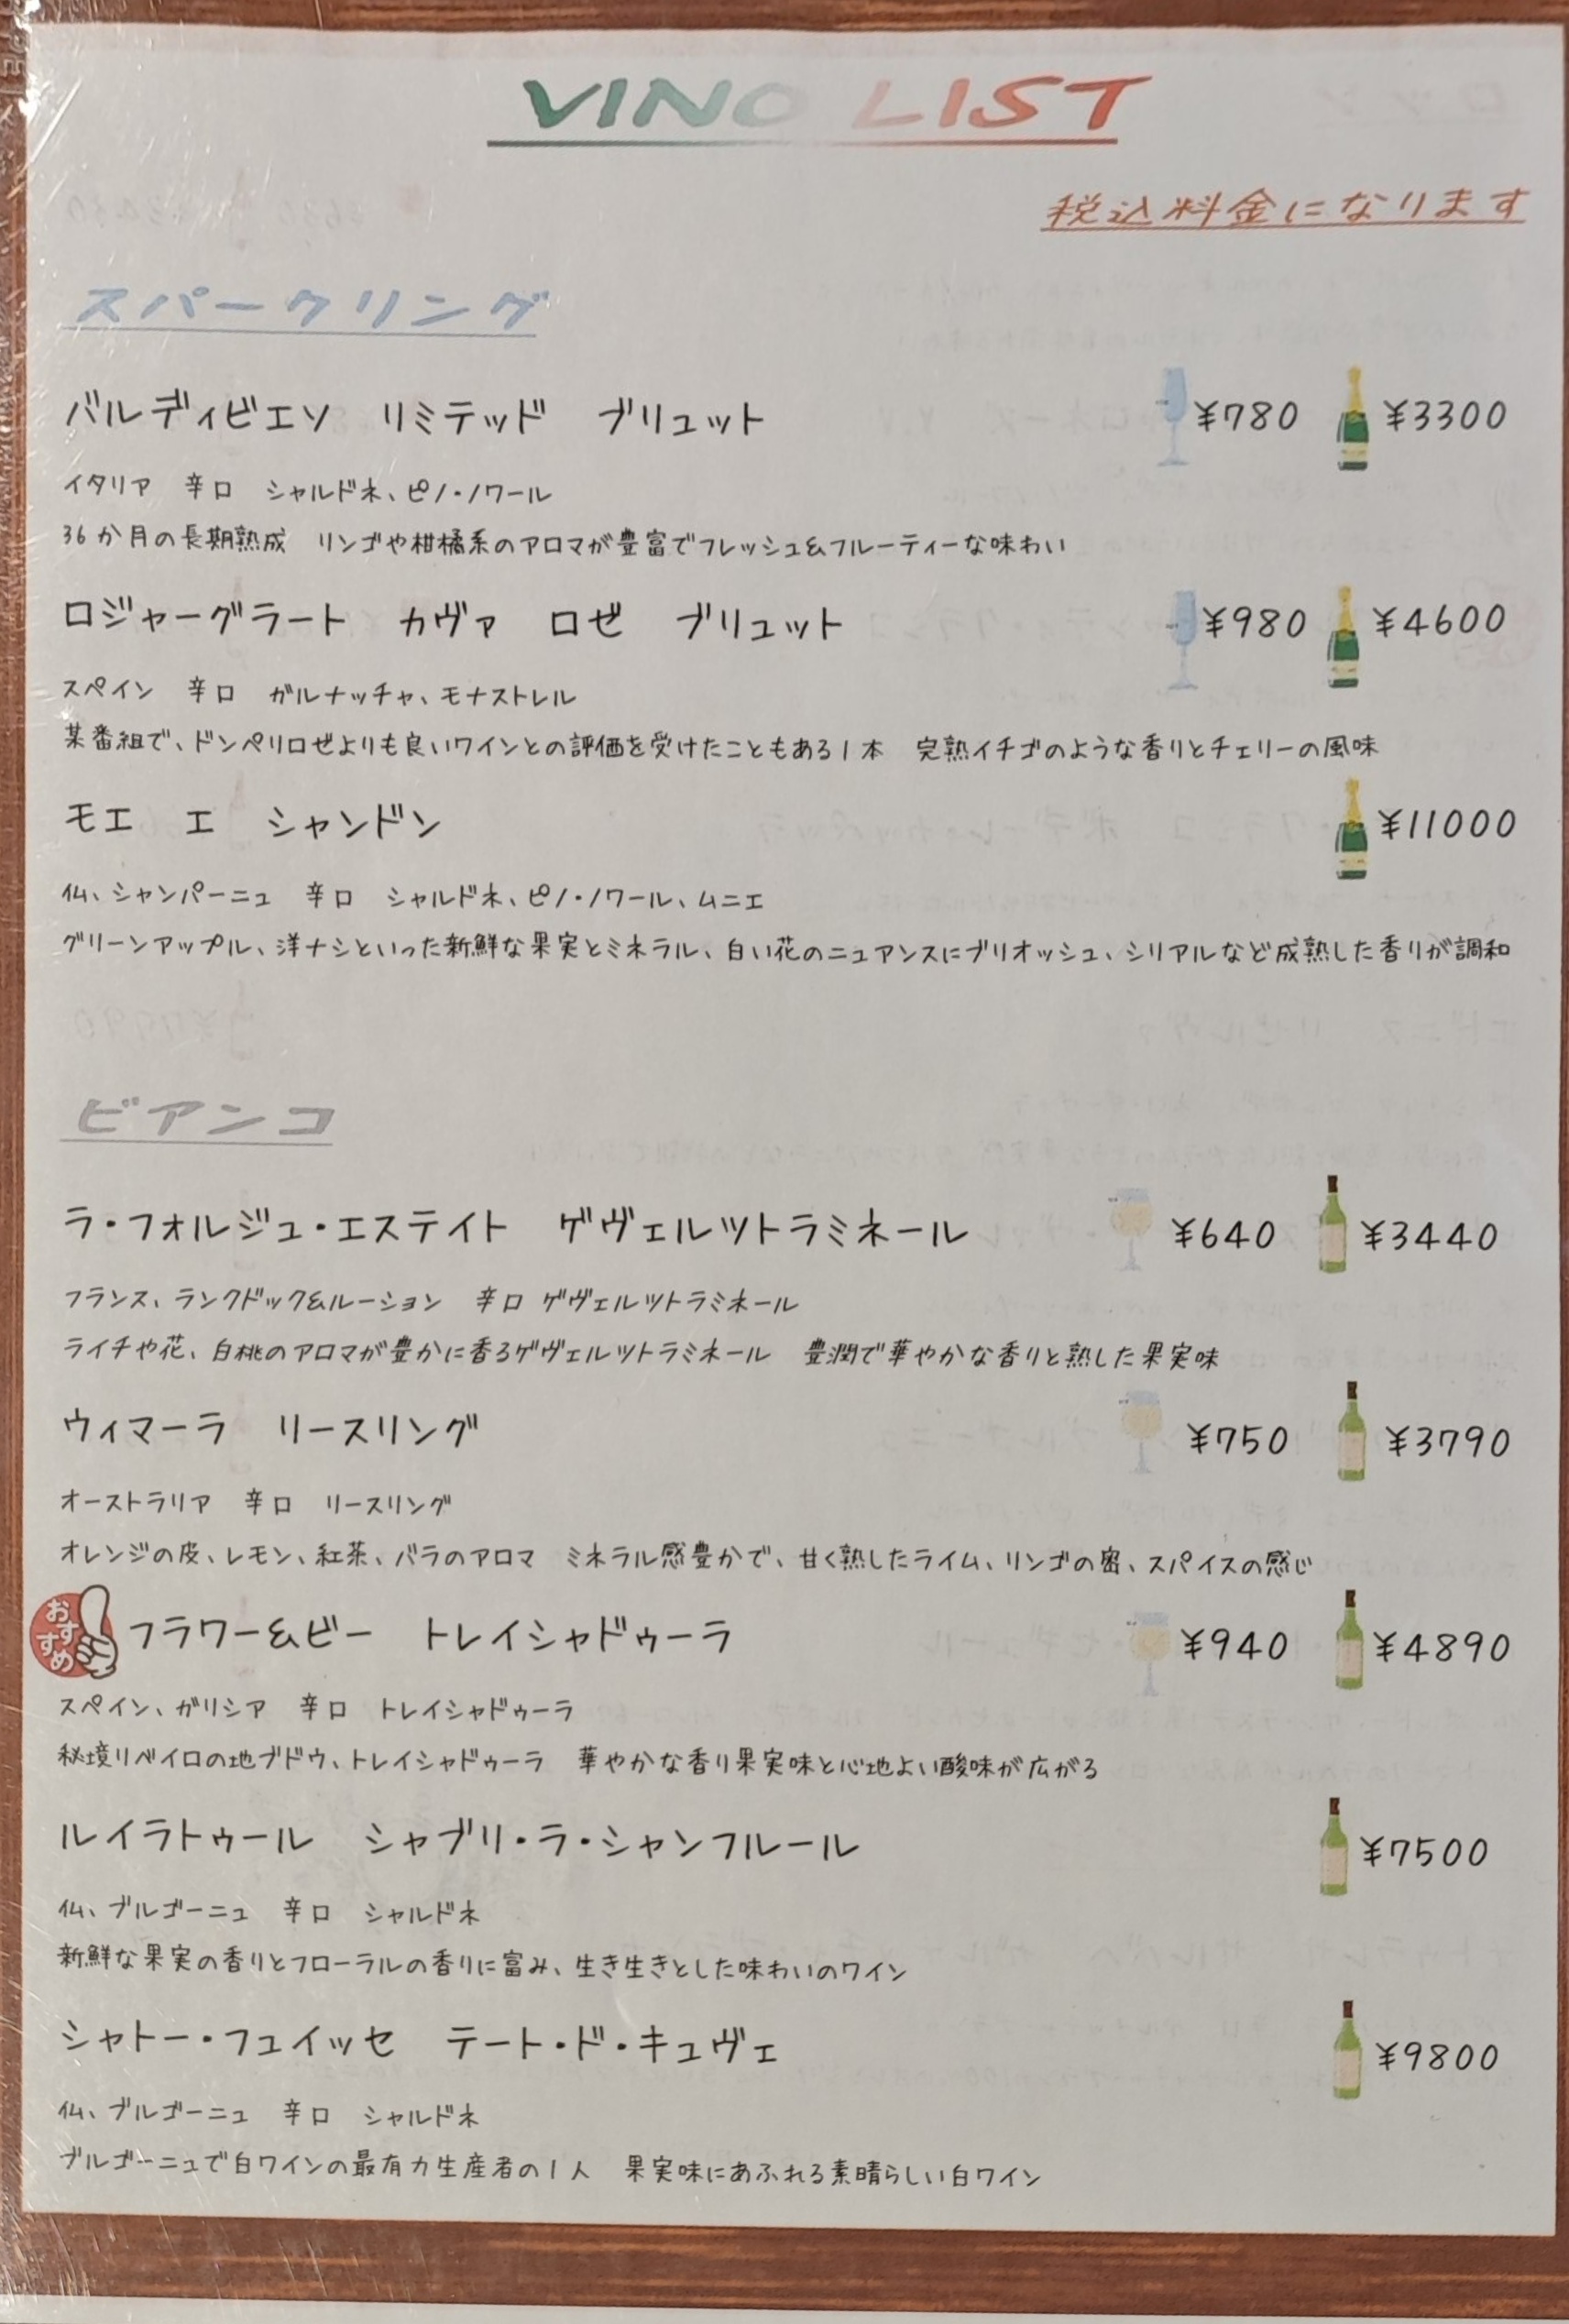 VINO LIST
税込料金になります
スパークリング
バルディビエソ リミテッド ブリュット ¥780 ¥3300
イタリア 辛口 シャルドネ、ピノ・ノワール
36か月の長期熟成 リンゴや柑橘系のアロマが豊富でフレッシュ&フルーティーな味わい
ロジャーグラート カヴァ ロゼ ブリュット ¥980 ¥4600
スペイン 辛口 ガルナッチャ、モナストレル
某番組で、ドンペリロゼよりも良いワインとの評価を受けたこともある1本 完熟イチゴのような香りとチェリーの風味
モエ エ シャンドン ¥11000
仏、シャンパーニュ 辛口 シャルドネ、ピノ・ノワール、ムニエ
グリーンアップル、洋ナシといった新鮮な果実とミネラル、白い花のニュアンスにブリオッシュ、シリアルなど成熟した香りが調和
ビアンコ
ラ・フォルジュ・エステイト ゲヴェルツトラミネール ¥640 ¥3440
フランス、ランクドック&ルーション 辛口 ゲヴェルツトラミネール
ライチや花、白桃のアロマが豊かに香るゲヴェルツトラミネール 豊潤で華やかな香りと熟した果実味
ウィマーラ リースリング ¥750 ¥3790
オーストラリア 辛口 リースリング
オレンジの皮、レモン、紅茶、バラのアロマ ミネラル感豊かで、甘く熟したライム、リンゴの密、スパイスの感じ
おすすめ フラワー&ビー トレイシャドゥーラ ¥940 ¥4890
スペイン、ガリシア 辛口 トレイシャドゥーラ
秘境リベイロの地ブドウ、トレイシャドゥーラ 華やかな香り果実味と心地よい酸味が広がる
ルイラトゥール シャブリ・ラ・シャンフルール ¥7500
仏、ブルゴーニュ 辛口 シャルドネ
新鮮な果実の香りとフローラルの香りに富み、生き生きとした味わいのワイン
シャトー・フュイッセ テート・ド・キュヴェ ¥9800
仏、ブルゴーニュ 辛口 シャルドネ
ブルゴーニュで白ワインの最有力生産者の1人 果実味にあふれる素晴らしい白ワイン